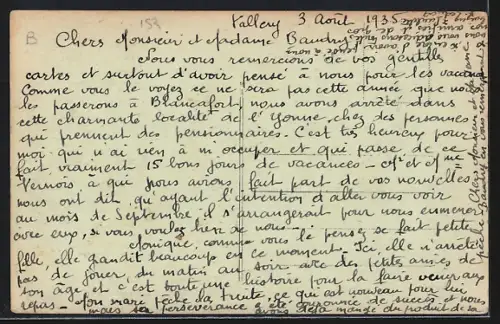 153
B
Vallery 3 Août 1935
Chers Monsieur et Madame Baudry
Nous vous remercions de vos gentilles
cartes et surtout d'avoir pensé à nous pour les vacances
Comme vous le voyez ce ne sera pas cette année que nous
les passerons à Blancafort nous avons arrêté dans
cette charmante localité de l'Yonne, chez des personnes
qui prennent des pensionnaires. C'est très heureux pour
moi qui n'ai rien à m'occuper et qui passe de ce
fait vraiment 15 bons jours de vacances - Mr et Mme
Vernois à qui nous avions fait part de vos nouvelles
nous ont dit qu'ayant l'intention d'aller vous voir
au mois de Septembre, il s'arrangerait pour nous emmener
avec eux, si vous voulez bien de nous -
Monique, comme vous le pensez se fait petite
fille, elle grandit beaucoup en ce moment. Ici, elle n'arrête
pas de jouer, du matin au soir avec des petites amies de
son âge et c'est toute une histoire pour la faire venir aux
repas - Mon mari pêche la truite, ce qui est nouveau pour lui
mais sa persévérance a été couronnée de succès et nous
avons déjà mangé du produit de sa
pêche - Chers Monsieur et Madame
Baudry en vous